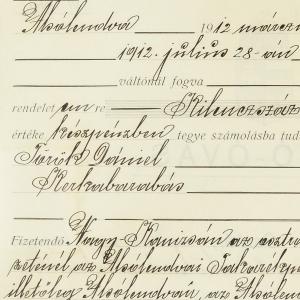 Alsólendva 1912 március
1912. julius 28-án
váltónál fogva
rendelet em re Kilenczszáz
értéke készpénzben tegye számolásba tud
Török Dániel
Kerkabarabás
Fizetendő Nagy-Kanizsán az osztrá
zeténél az Alsólendvai Takarékp
illetőleg Alsólendván, az Alsólen